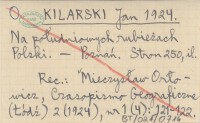 KILARSKI Jan 1924.
Na południowych rubieżach
Polski. — Poznań. Stron 250, il.
Rec.: "Mieczysław Orło-
wicz, Czasopismo Geograficzne
(Łódź) 2 (1924), nr 1(4): 121-122.